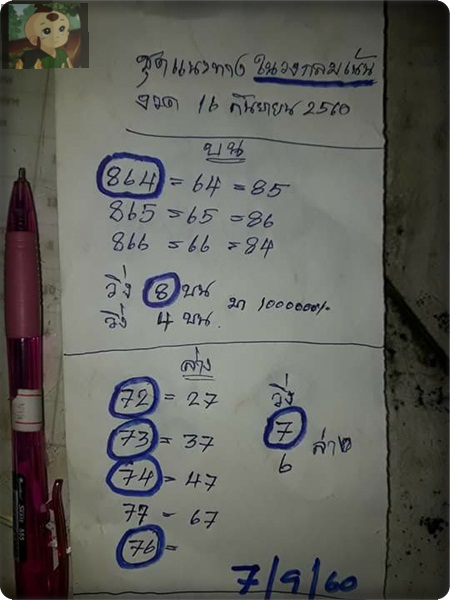 ชุดแนวทาง ในวงกลมเน้น
งวด 16 กันยายน 2560
บน
864 = 64 = 85
865 = 65 = 86
866 = 66 = 84
วิ่ง 8 บน มา 1000000%
วิ่ง 4 บน
ล่าง
72 = 27
73 = 37
74 = 47
77 = 67
76 =
วิ่ง
7
6
ล่าง
7/9/60